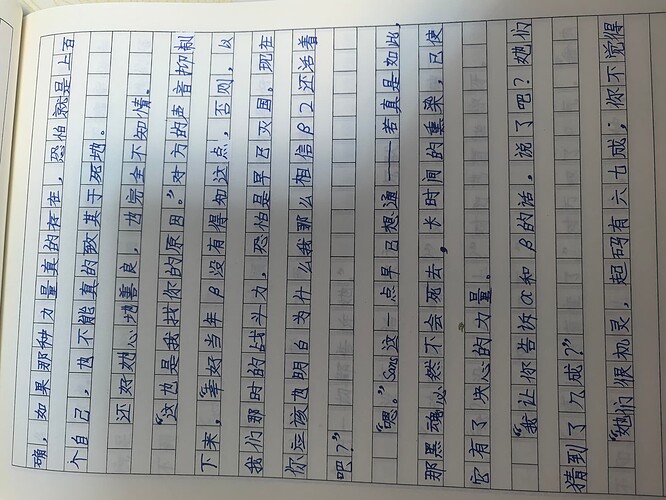 确，如果那种力量真的存在，恐怕就是上百
个自己，也不能真的致其于死地。
还好她心地善良，也完全不知情。
“这也是我找你的原因。”对方的声音抑制
下来，“幸好当年β没有得知这点，否则，以
我们那时的战斗力，恐怕是早已灭国。现在
你应该也明白为什么我那么相信β2还活着
吧？”
“嗯。”Sans这一点早已想通——若真是如此，
那黑魂必然不会死去，长时间的熏染，已使
它有了决心的力量。
“我让你告诉α和β的话，说了吧？她们
猜到了几成？”
“她们很机灵，起码有六七成，你不觉得